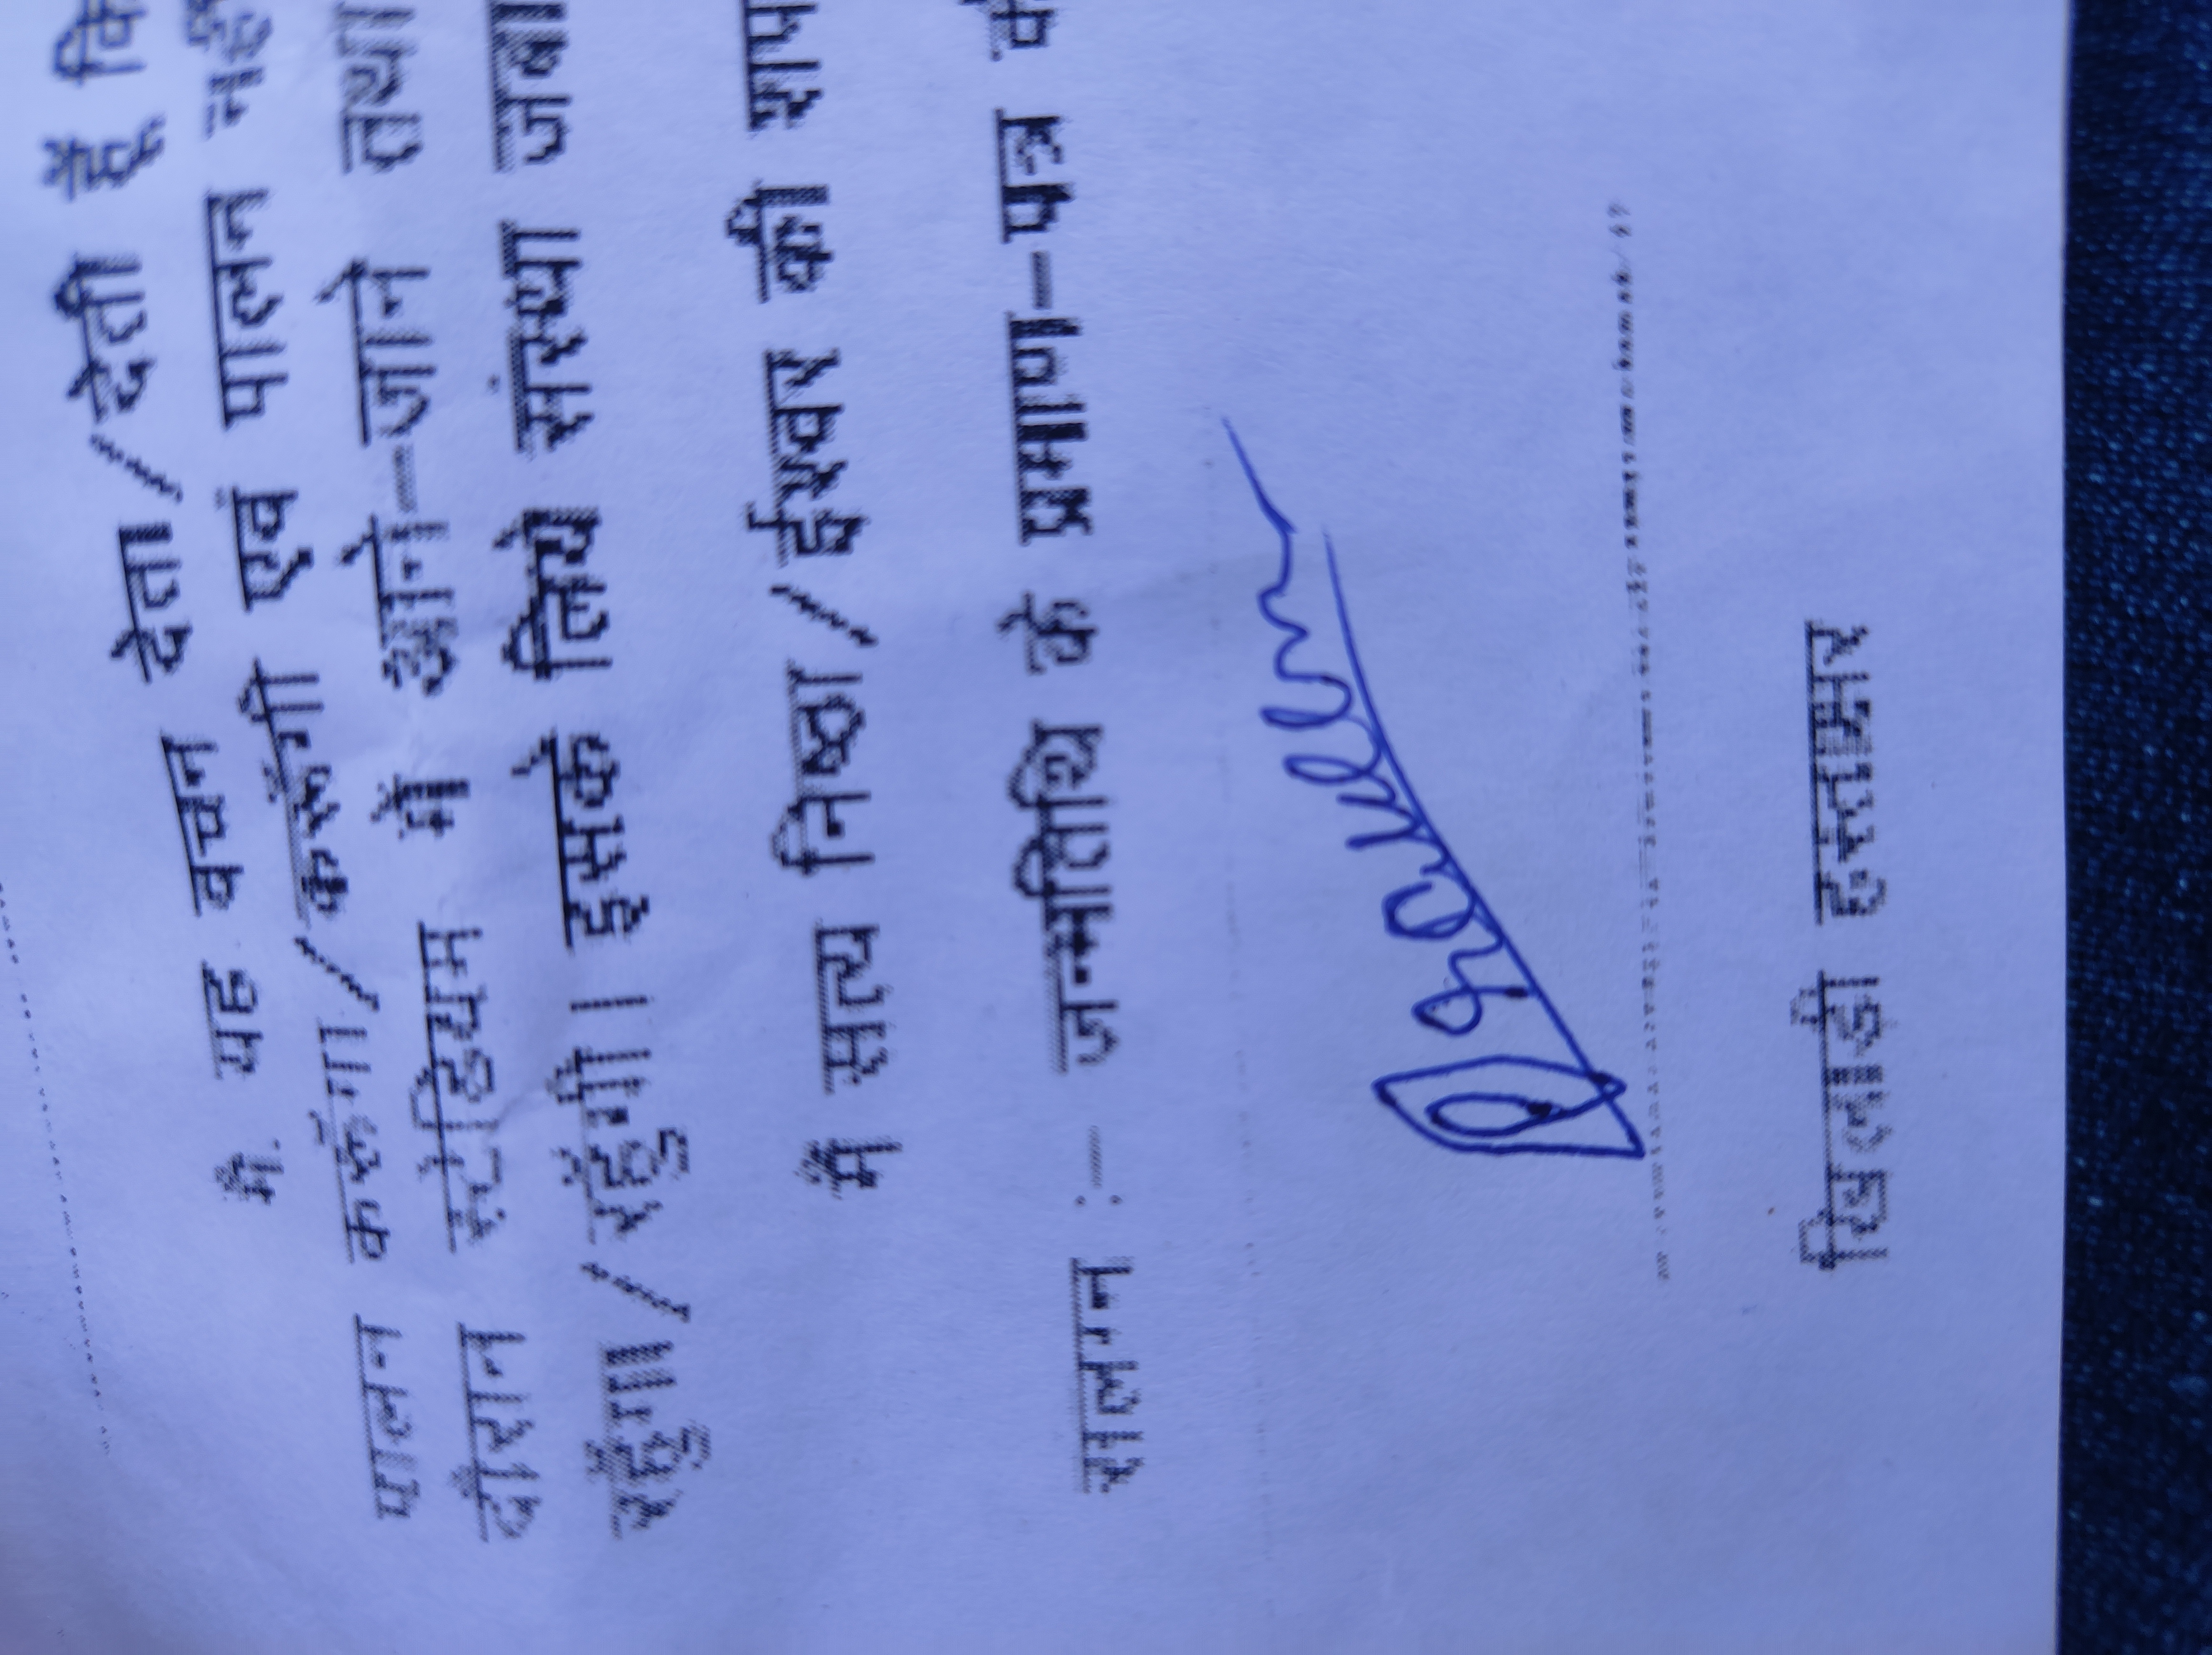 मै यह वचन देता/देती हूँ कि
पालन करूँगा/करूँगी एवं पालन
दौरान में आने-जाने तथा
रहूँगा/रहूँगी। इसके लिये संस्था
मैं सत्य निष्ठा/ईश्वर की
संलग्न :— जन्मतिथि के प्रमाण-पत्र
विद्यार्थी हस्ताक्षर